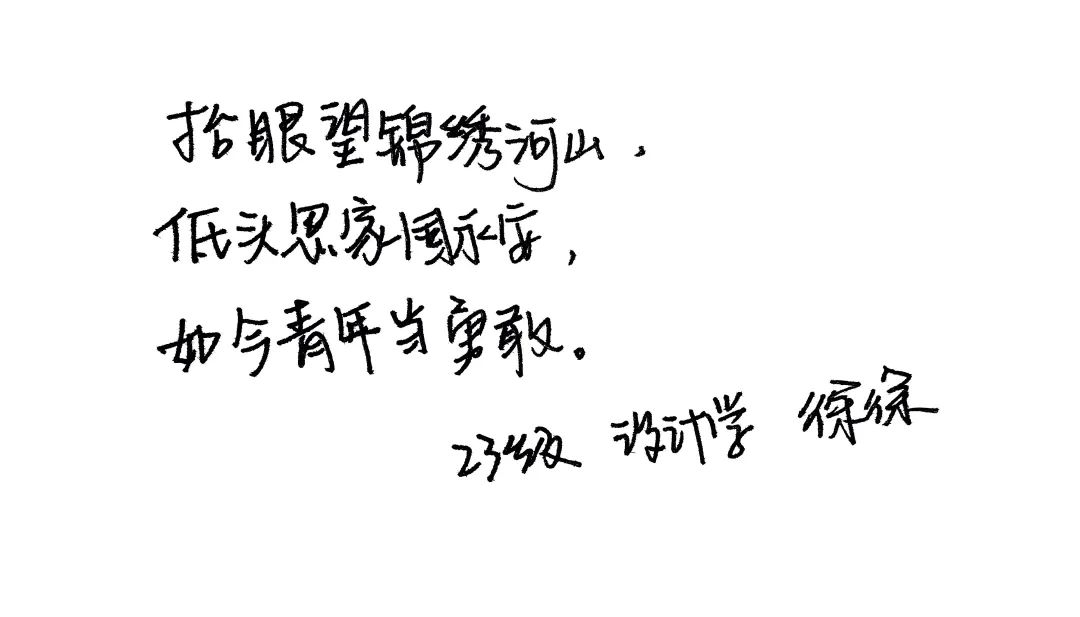 抬眼望锦绣河山，
低头思家国永安，
如今青年当勇敢。
23级 设计学 徐徐